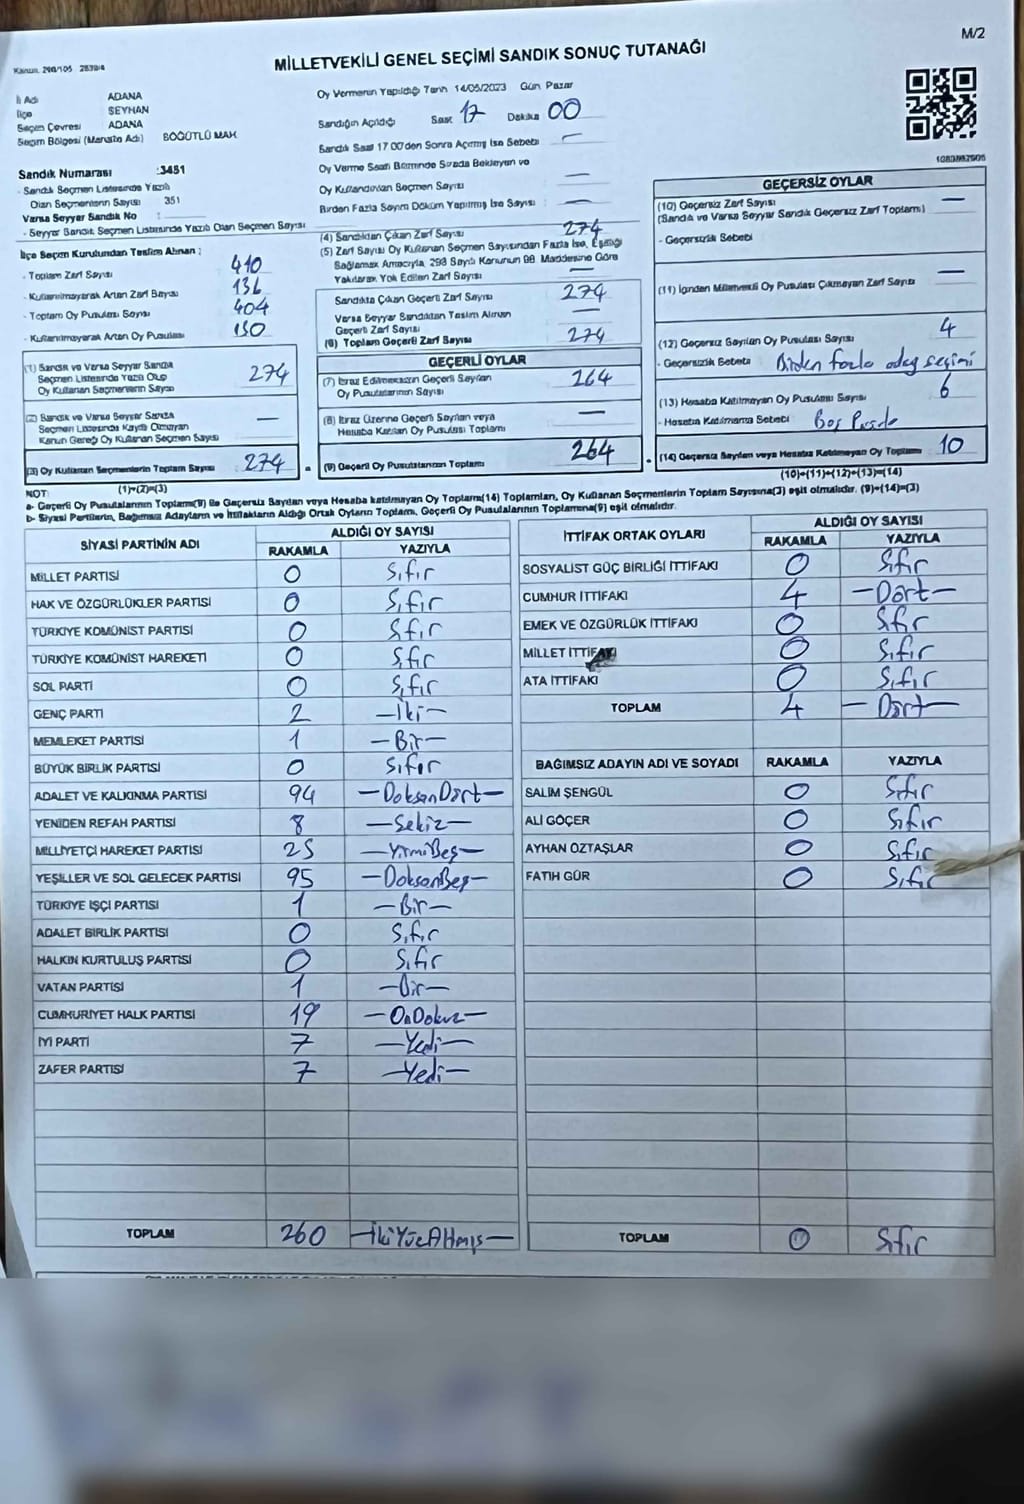 M/2
MİLLETVEKİLİ GENEL SEÇİMİ SANDIK SONUÇ TUTANAĞI
Kanun. 298/105 2839/4
İl Adı ADANA
İlçe SEYHAN
Seçim Çevresi ADANA
Seçim Bölgesi (Mahalle Adı) BÖĞÜTLÜ MAH.
Sandık Numarası : 3451
- Sandık Seçmen Listesinde Yazılı
Olan Seçmenlerin Sayısı 351
Varsa Seyyar Sandık No :
- Seyyar Sandık Seçmen Listesinde Yazılı Olan Seçmen Sayısı
İlçe Seçim Kurulundan Teslim Alınan :
- Toplam Zarf Sayısı 410
- Kullanılmayarak Artan Zarf Sayısı 136
- Toplam Oy Pusulası Sayısı 404
- Kullanılmayarak Artan Oy Pusulası 130
(1) Sandık ve Varsa Seyyar Sandık
Seçmen Listesinde Yazılı Olup
Oy Kullanan Seçmenlerin Sayısı 274
(2) Sandık ve Varsa Seyyar Sandık
Seçmen Listesinde Kaydı Olmayan
Kanun Gereği Oy Kullanan Seçmen Sayısı —
(3) Oy Kullanan Seçmenlerin Toplam Sayısı 274
(1)+(2)=(3)
Oy Vermenin Yapıldığı Tarih 14/05/2023 Gün Pazar
Sandığın Açıldığı Saat 17 Dakika 00
Sandık Saat 17.00'den Sonra Açılmış İse Sebebi —
Oy Verme Saati Bitiminde Sırada Bekleyen ve
Oy Kullandırılan Seçmen Sayısı —
Birden Fazla Sayım Döküm Yapılmış İse Sayısı —
(4) Sandıktan Çıkan Zarf Sayısı 274
(5) Zarf Sayısı Oy Kullanan Seçmen Sayısından Fazla İse, Eşitliği
Sağlamak Amacıyla, 298 Sayılı Kanunun 98. Maddesine Göre
Yakılarak Yok Edilen Zarf Sayısı —
Sandıkta Çıkan Geçerli Zarf Sayısı 274
Varsa Seyyar Sandıktan Teslim Alınan
Geçerli Zarf Sayısı —
(6) Toplam Geçerli Zarf Sayısı 274
GEÇERLİ OYLAR
(7) İtiraz Edilmeksizin Geçerli Sayılan
Oy Pusulalarının Sayısı 264
(8) İtiraz Üzerine Geçerli Sayılan veya
Hesaba Katılan Oy Pusulası Toplamı —
(9) Geçerli Oy Pusulalarının Toplamı 264
1080882905
GEÇERSİZ OYLAR
(10) Geçersiz Zarf Sayısı
(Sandık ve Varsa Seyyar Sandık Geçersiz Zarf Toplamı) —
- Geçersizlik Sebebi
(11) İçinden Milletvekili Oy Pusulası Çıkmayan Zarf Sayısı —
(12) Geçersiz Sayılan Oy Pusulası Sayısı 4
- Geçersizlik Sebebi Birden fazla aday seçimi
(13) Hesaba Katılmayan Oy Pusulası Sayısı 6
- Hesaba Katılmama Sebebi Boş Pusula
(14) Geçersiz Sayılan veya Hesaba Katılmayan Oy Toplamı 10
(10)+(11)+(12)+(13)=(14)
NOT:
a- Geçerli Oy Pusulalarının Toplamı(9) ile Geçersiz Sayılan veya Hesaba katılmayan Oy Toplamı(14) Toplamları, Oy Kullanan Seçmenlerin Toplam Sayısına(3) eşit olmalıdır. (9)+(14)=(3)
b- Siyasi Partilerin, Bağımsız Adayların ve İttifakların Aldığı Ortak Oyların Toplamı, Geçerli Oy Pusulalarının Toplamına(9) eşit olmalıdır.
SİYASİ PARTİNİN ADI ALDIĞI OY SAYISI
RAKAMLA YAZIYLA
MİLLET PARTİSİ 0 Sıfır
HAK VE ÖZGÜRLÜKLER PARTİSİ 0 Sıfır
TÜRKİYE KOMÜNİST PARTİSİ 0 Sıfır
TÜRKİYE KOMÜNİST HAREKETİ 0 Sıfır
SOL PARTİ 0 Sıfır
GENÇ PARTİ 2 —İki—
MEMLEKET PARTİSİ 1 —Bir—
BÜYÜK BİRLİK PARTİSİ 0 Sıfır
ADALET VE KALKINMA PARTİSİ 94 —DoksanDört—
YENİDEN REFAH PARTİSİ 8 —Sekiz—
MİLLİYETÇİ HAREKET PARTİSİ 25 —YirmiBeş—
YEŞİLLER VE SOL GELECEK PARTİSİ 95 —DoksanBeş—
TÜRKİYE İŞÇİ PARTİSİ 1 —Bir—
ADALET BİRLİK PARTİSİ 0 Sıfır
HALKIN KURTULUŞ PARTİSİ 0 Sıfır
VATAN PARTİSİ 1 —Bir—
CUMHURİYET HALK PARTİSİ 19 —OnDokuz—
İYİ PARTİ 7 —Yedi—
ZAFER PARTİSİ 7 —Yedi—
TOPLAM 260 —İkiYüzAltmış—
İTTİFAK ORTAK OYLARI ALDIĞI OY SAYISI
RAKAMLA YAZIYLA
SOSYALİST GÜÇ BİRLİĞİ İTTİFAKI 0 Sıfır
CUMHUR İTTİFAKI 4 —Dört—
EMEK VE ÖZGÜRLÜK İTTİFAKI 0 Sıfır
MİLLET İTTİFAKI 0 Sıfır
ATA İTTİFAKI 0 Sıfır
TOPLAM 4 —Dört—
BAĞIMSIZ ADAYIN ADI VE SOYADI RAKAMLA YAZIYLA
SALİM ŞENGÜL 0 Sıfır
ALİ GÖÇER 0 Sıfır
AYHAN ÖZTAŞLAR 0 Sıfır
FATİH GÜR 0 Sıfır
TOPLAM 0 Sıfır